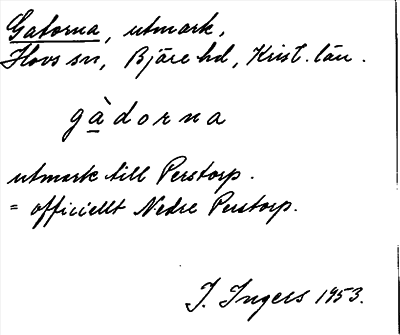 Gatorna, utmark,
Hovs sn, Bjäre hd, Krist. län.
gàdorna
utmark till Perstorp.
= officiellt Nedre Perstorp.
I. Ingers 1953.